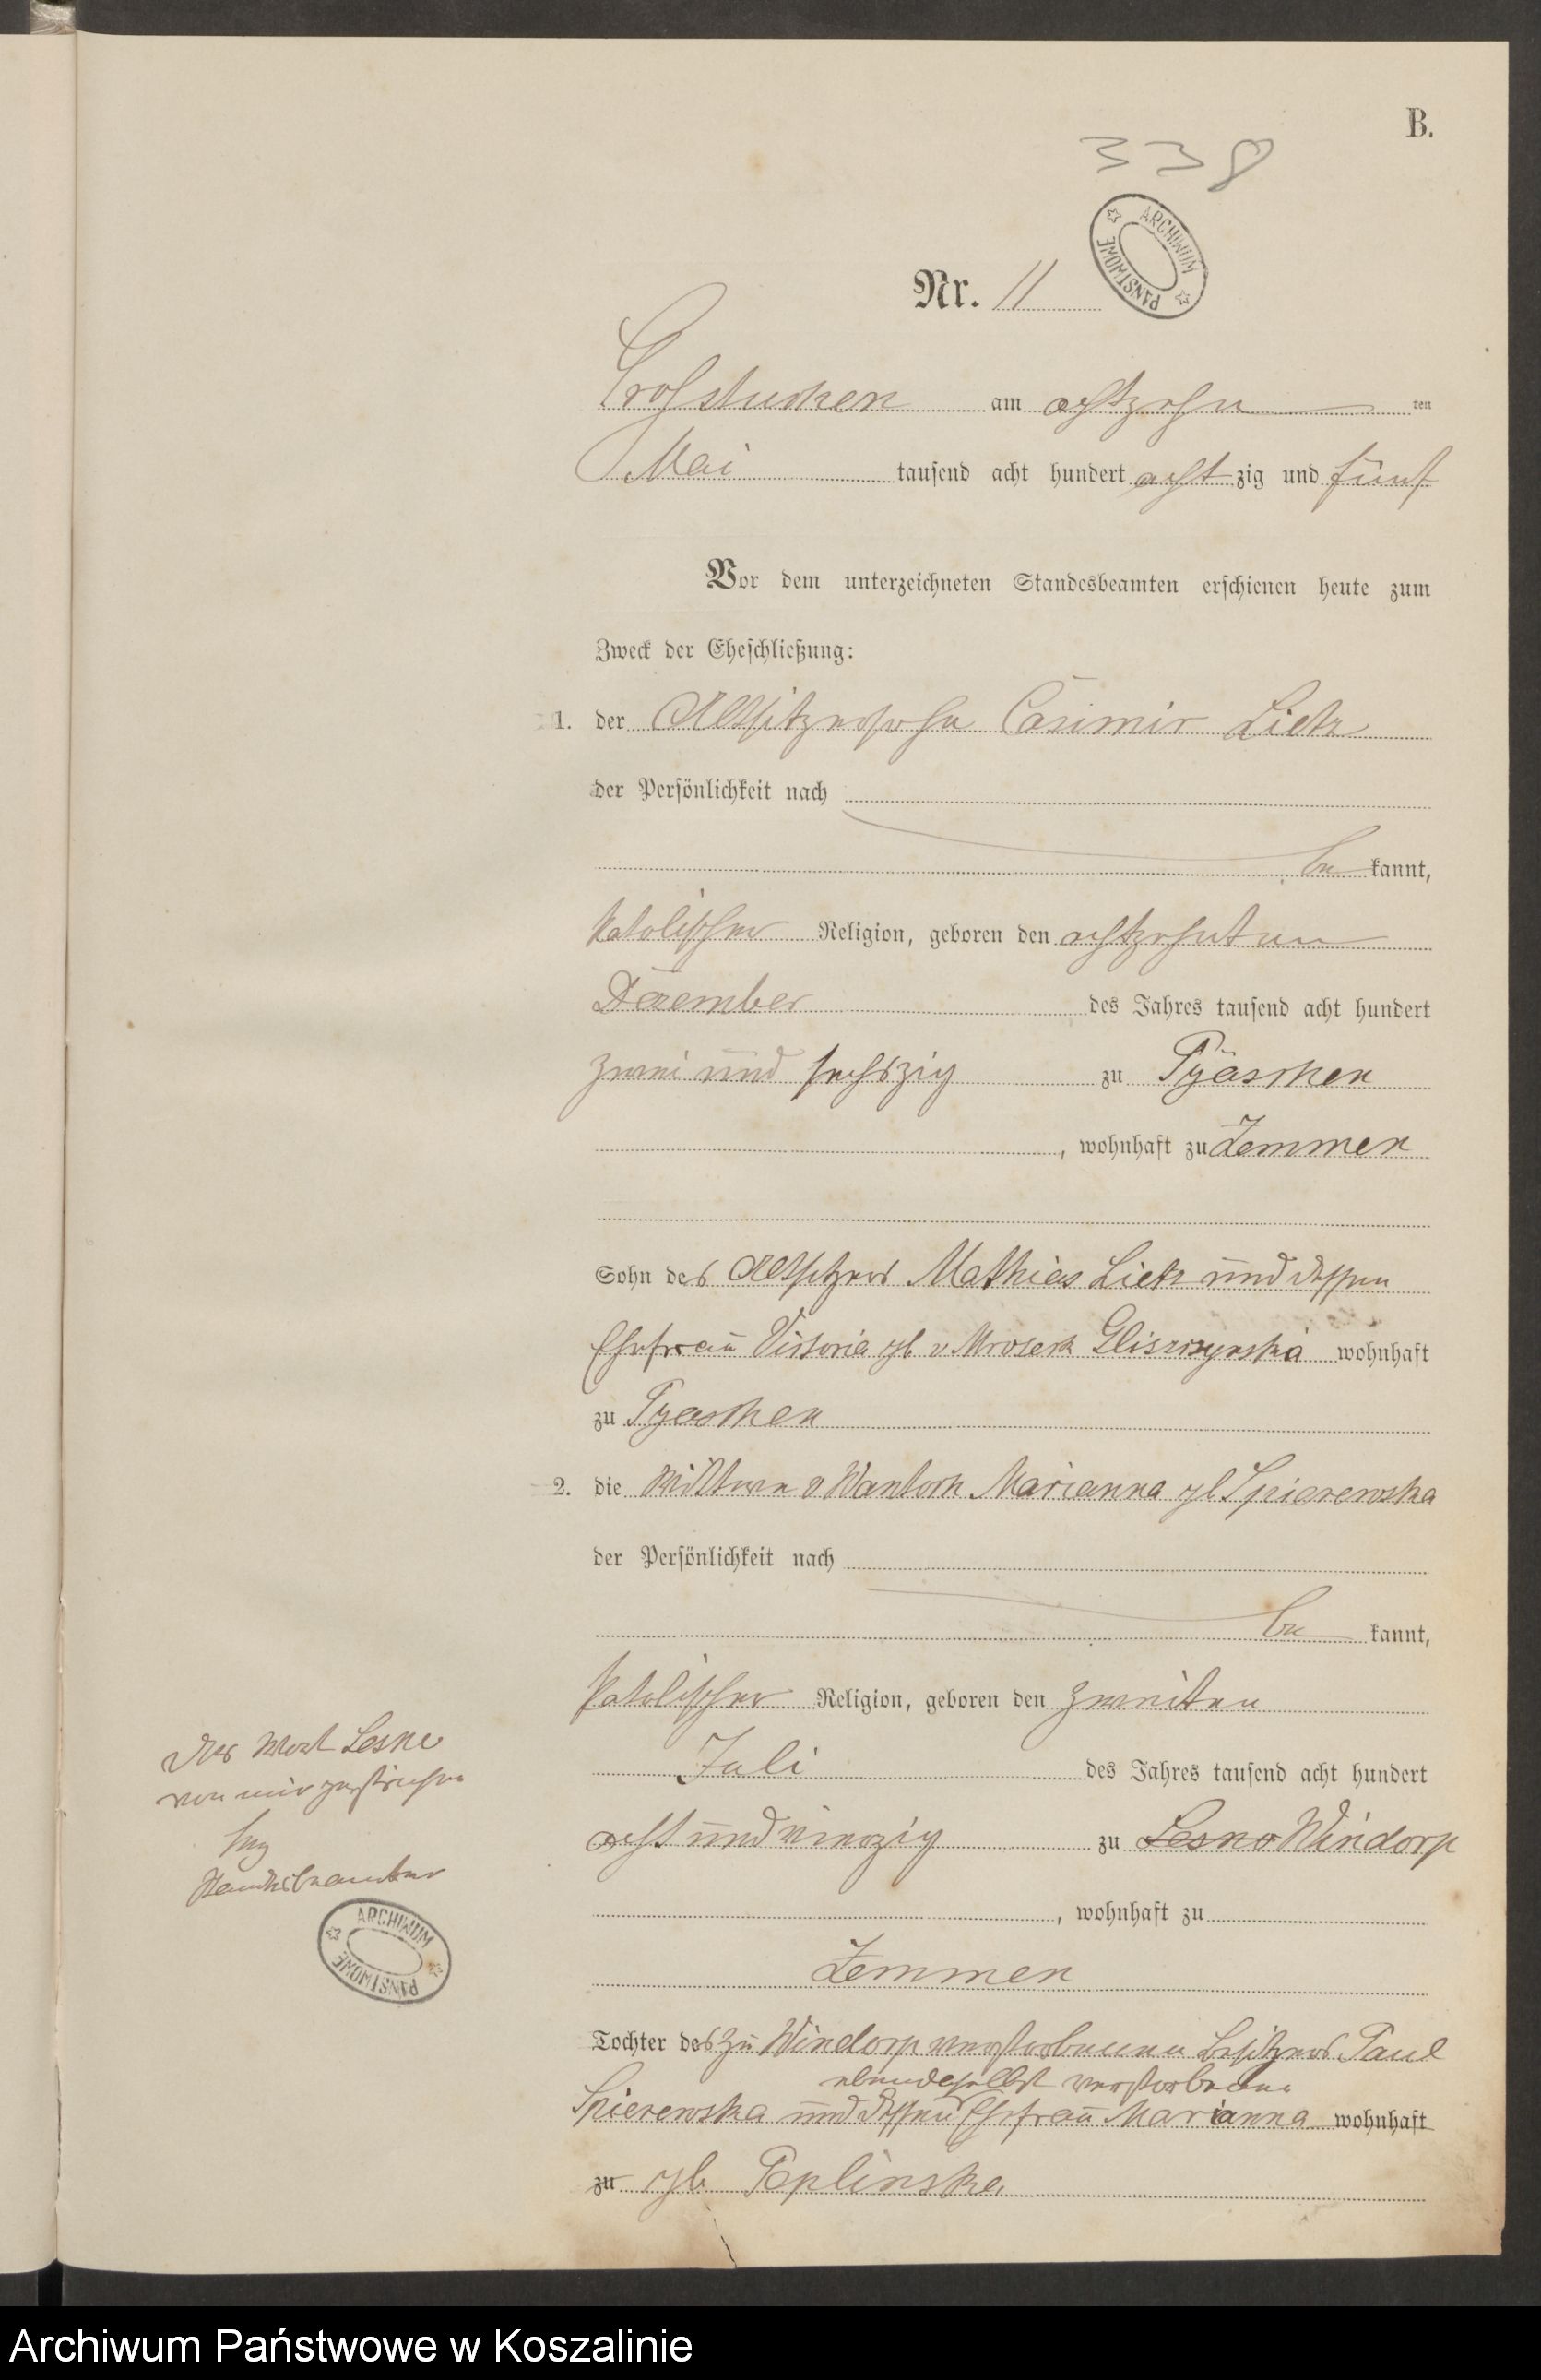 B.
338
ARCHIWUM PAŃSTWOWE
Nr. 11
Großtuchen am achtzehn ten
Mai tausend acht hundert acht zig und fünf
Vor dem unterzeichneten Standesbeamten erschienen heute zum
Zweck der Eheschließung:
1. der Altsitzersohn Casimir Lietz
der Persönlichkeit nach
be kannt,
katolischer Religion, geboren den achtzehnten
Dezember des Jahres tausend acht hundert
zwei und sechszig zu Pyaschen
, wohnhaft zu Zemmen
Sohn des Altsitzers Mathias Lietz und dessen
Ehefrau Victoria gb v Mrosek Gliszczynska wohnhaft
zu Pyaschen
2. die Wittwe v Wantoch Marianna gb Spierewska
der Persönlichkeit nach
be kannt,
katolischer Religion, geboren den zweiten
Juli des Jahres tausend acht hundert
acht und vierzig zu Lesno Windorp
, wohnhaft zu
Zemmen
Tochter des zu Windorp verstorbenen Besitzers Paul
ebendaselbst verstorbene
Spierewska und dessen Ehefrau Marianna wohnhaft
zu gb Peplinska
Das Wort Lesno
von mir gestrichen
Standesbeamter
ARCHIWUM PAŃSTWOWE
Archiwum Państwowe w Koszalinie